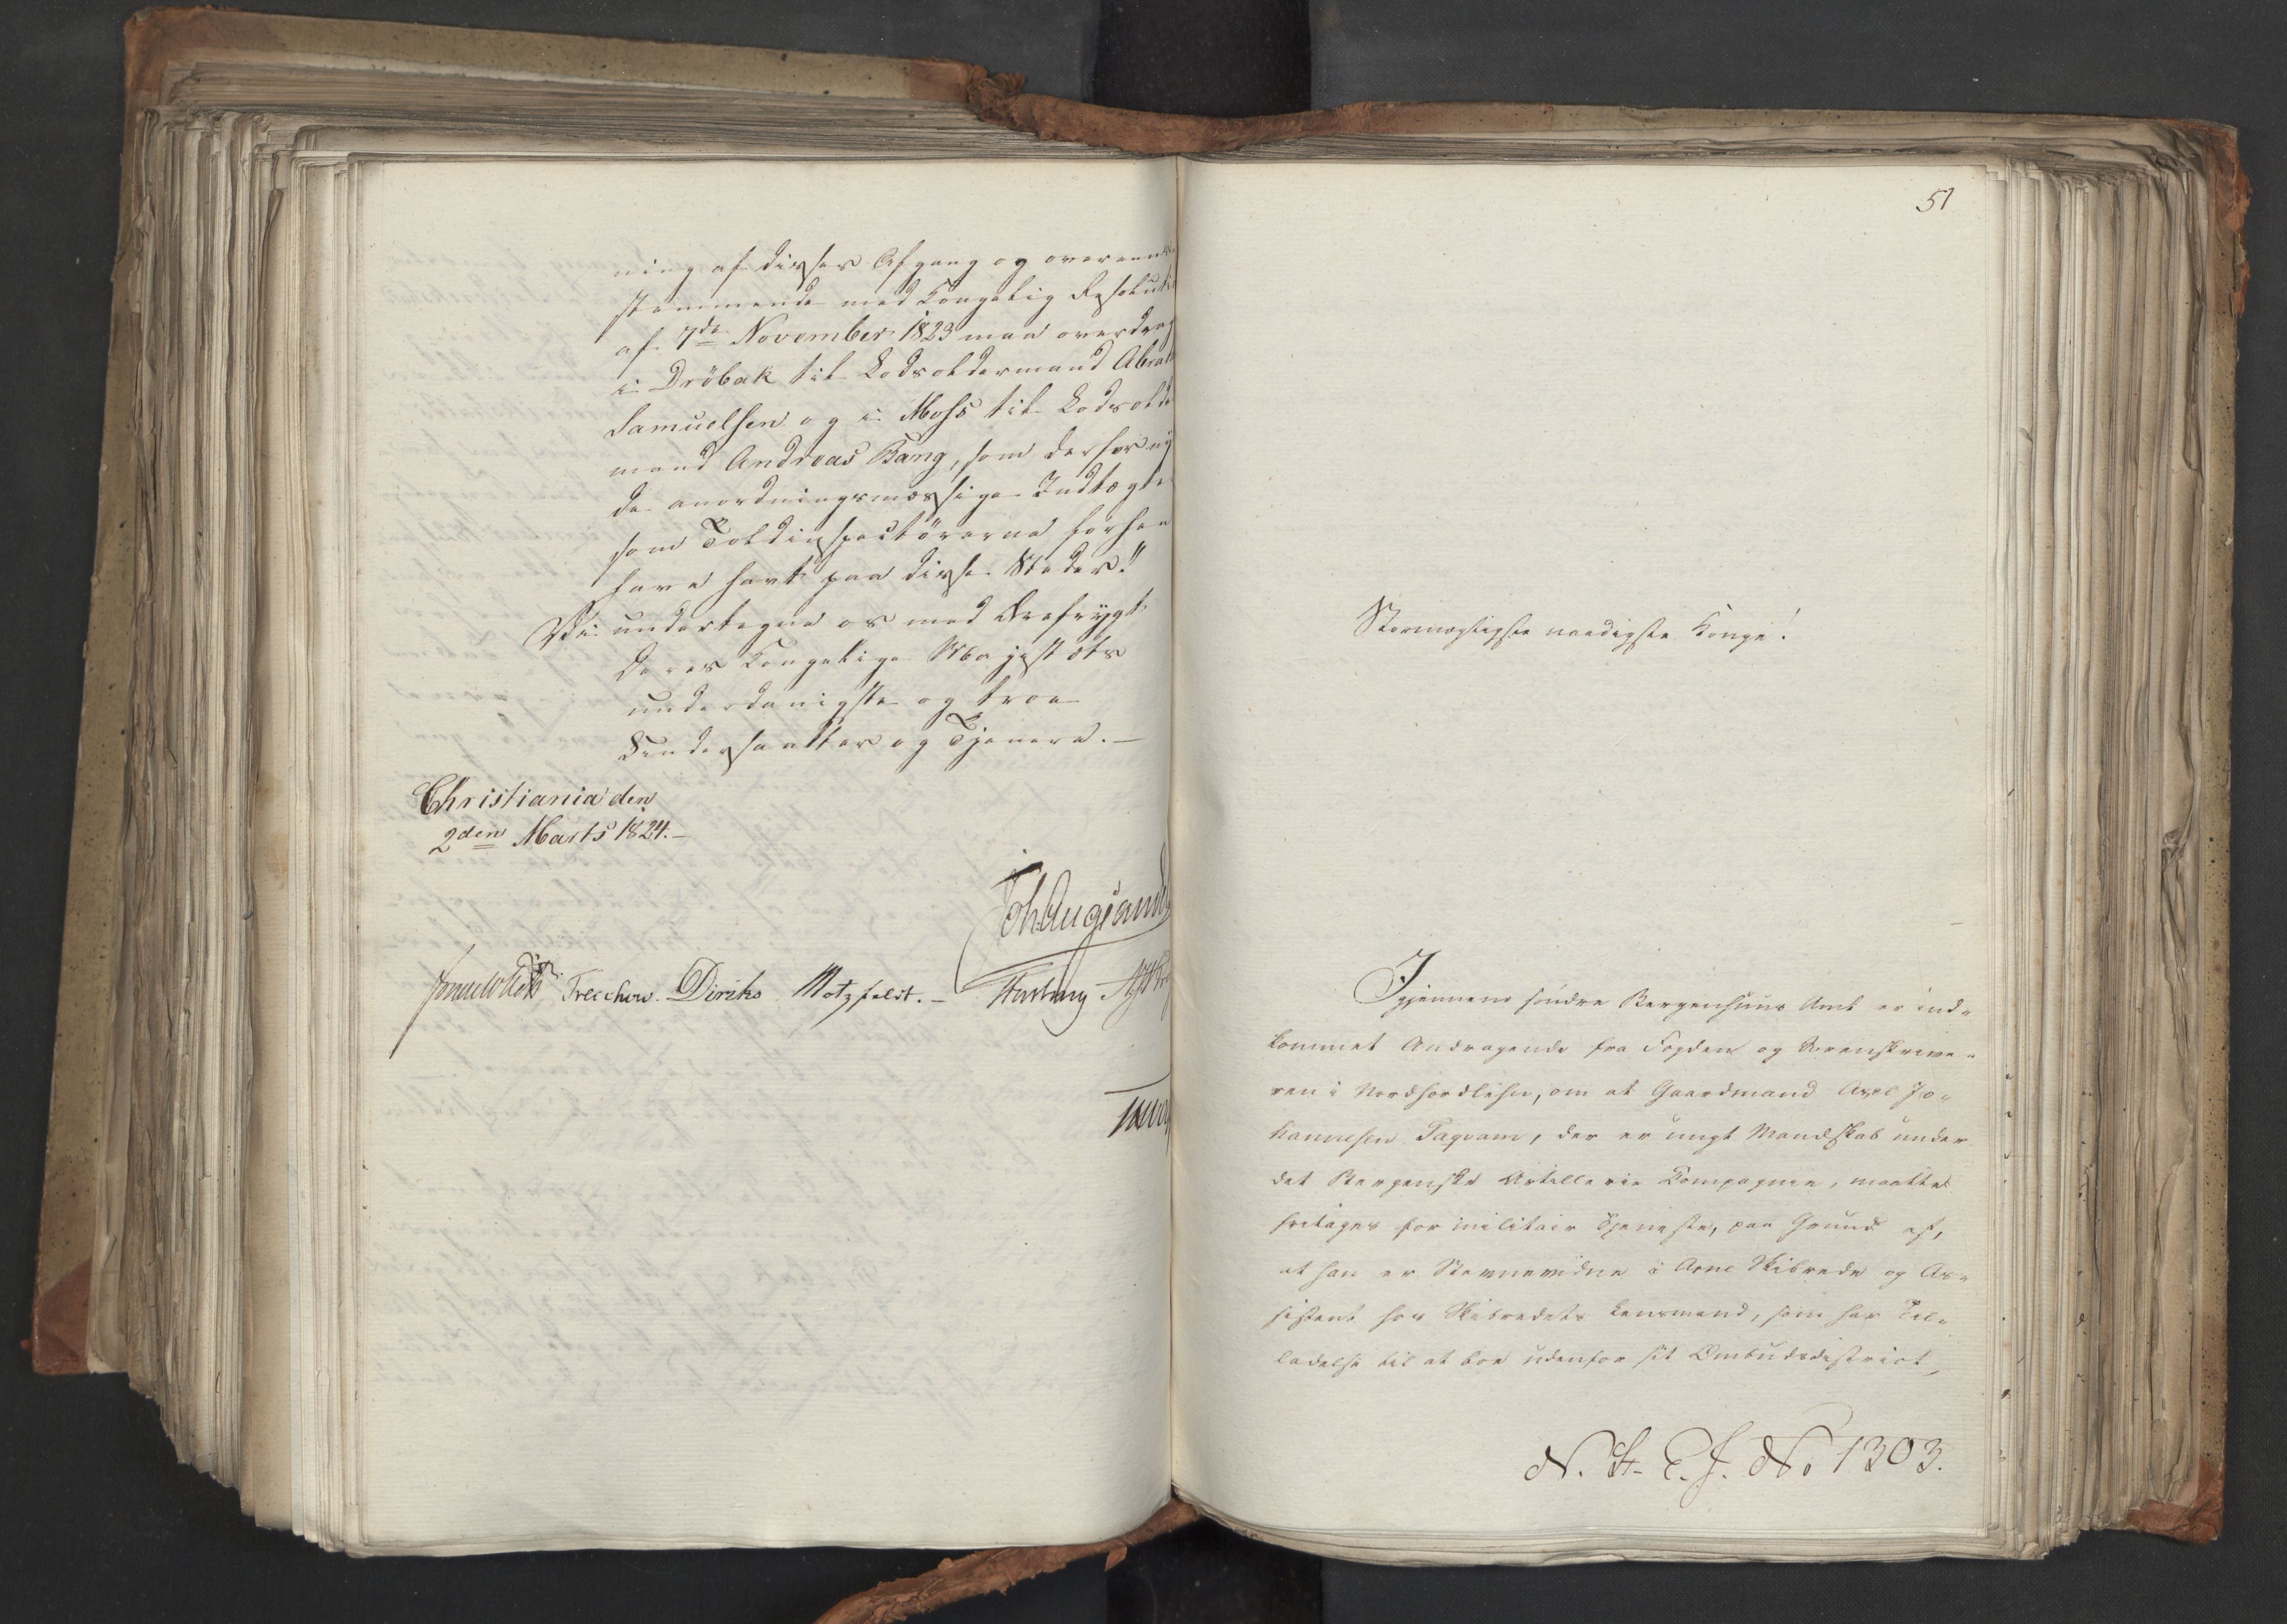 ning af disses Afgang og overeens-
stemmende med Kongelig Resoluti
af 7de November 1823 maa overdrag
i Dröbak til Lodsoldermand Abrah
Samuelsen og i Moss til Lodsolder
mand Andreas Bang, som derfor ny
de anordningsmæssige Indtægter
som Toldinspectörerne forhen
have havt paa disse Steder."
Vi undertegne os med Ærefrygt
Deres Kongelige Majestæts
underdanigste og troe
Undersaatter og Tjenere.-
Christiania den
2den Marts 1824.-
Joh Aug Sande
Sommerhielm Treschow. Diriks Motzfeldt.-
51
Stormægtigste naadigste Konge!
Igjennem söndre Bergenhuus Amt er ind-
kommet Andragende fra Fogden og Sorenskrive-
ren i Nordhordlehn, om at Gaardmand Axel Jo-
hannesen Taqvam, der er ungt Mandskab under
det Bergenske Artillerie Compagnie, maatte
fritages for militair Tjeneste, paa Grund af,
at han er Stevnevidne i Arne Skibrede og As-
sistent hos Skibredets Lensmand, som har Til-
ladelse til at boe udenfor sit Ombudsdistrict,
N. St. C. J. No 1303.